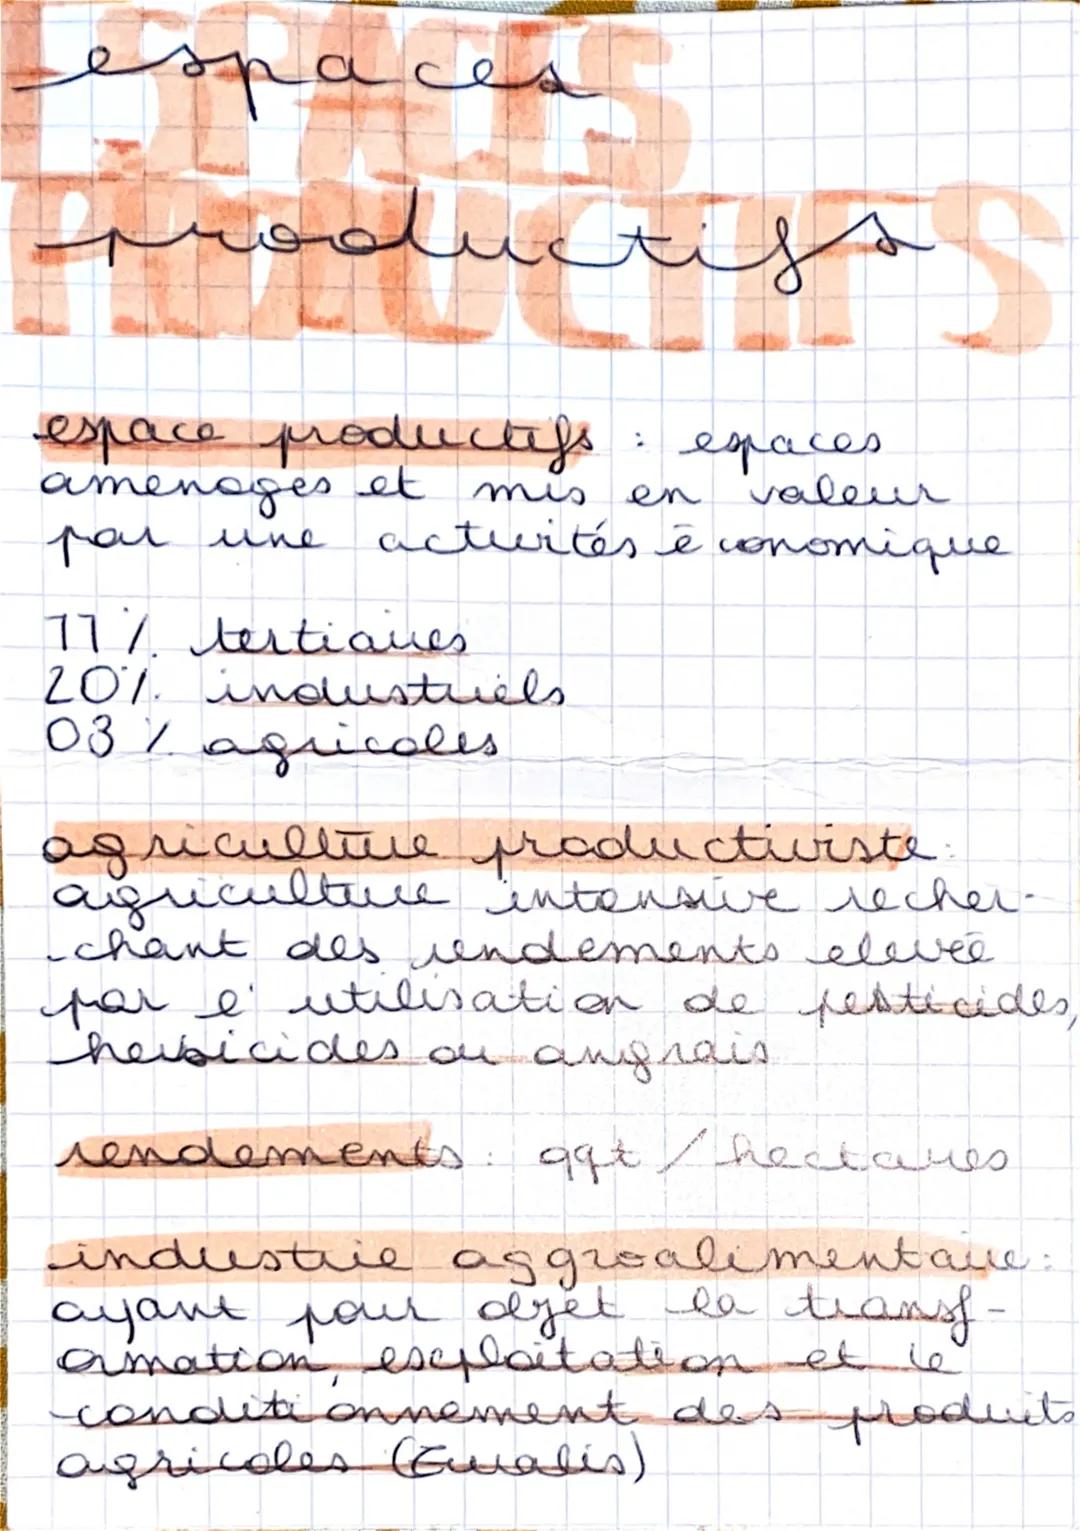 ESPACES
espaces
PRODUCTIFS
productifs
espace productifs : espaces
aménagés et mis en valeur
par une activités économique
77% tertiaires
20% industriels
03% agricoles
agriculture productiviste :
agriculture intensive recher-
-chant des rendements elevée
par l'utilisation de pesticides,
herbicides ou angrais
rendements : qqt / hectares
industrie aggroalimentaire :
ayant pour objet la transf-
ormation, exploitation et le
conditionnement des produits
agricoles